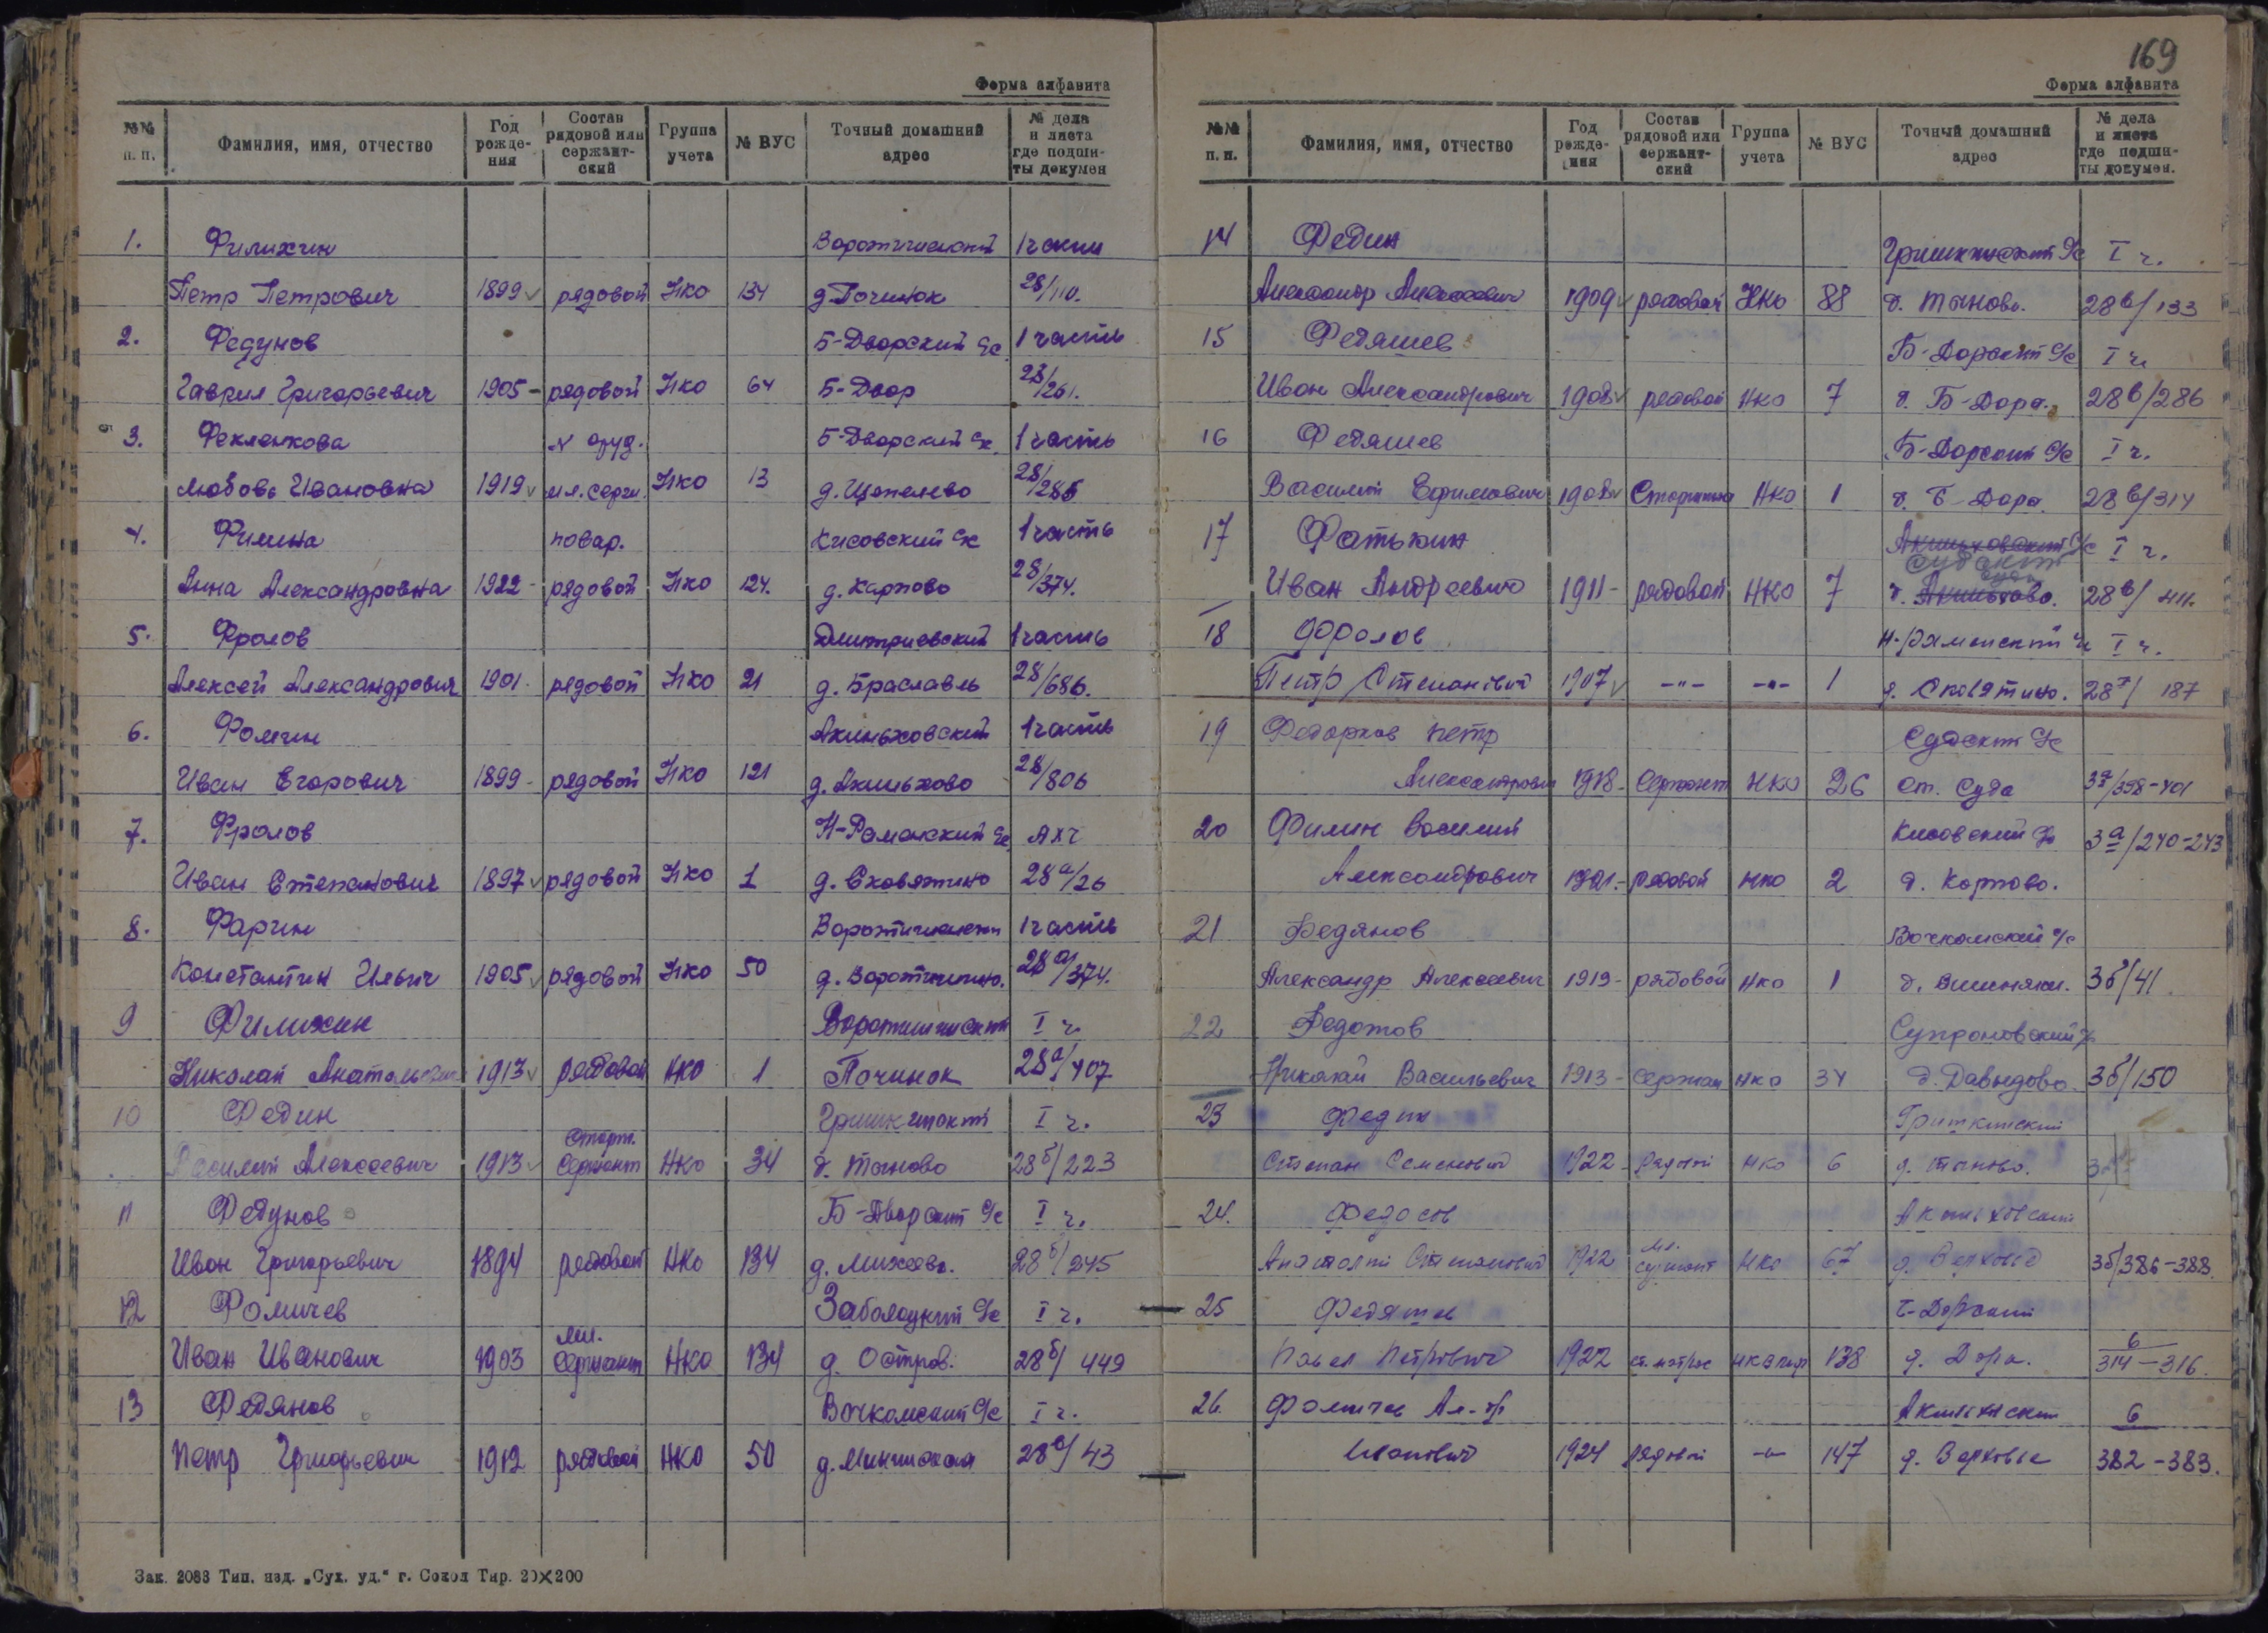 Форма алфавита
№№ п. п. Фамилия, имя, отчество Год рождения Состав рядовой или сержантский Группа учета № ВУС Точный домашний адрес № дела и листа где подшиты докумен
1. Филихин 1 части
Петр Петрович 1899 рядовой НКО 134 д. Починок 28/110.
2. Федунов Б-Дворский с/с 1 часть
Гаврил Григорьевич 1905 - рядовой НКО 64 Б-Двор 28/261.
3. Фекленкова Б-Дворский с/с 1 часть
Любовь Ивановна 1919 мл. серж. НКО 13 д. Щепелево 28/285
4. Филина повар. Кисовский с/с 1 часть
Анна Александровна 1922 - рядовой НКО 124. д. Карпово 28/374.
5. Фролов Дмитриевский 1 часть
Алексей Александрович 1901. рядовой НКО 21 д. Браславль 28/686.
6. Фомин Акиньховский 1 часть
Иван Егорович 1899 - рядовой НКО 121 д. Акиньхово 28/806
7. Фролов Н-Раменский с/с
Иван Степанович 1897 рядовой НКО 1 д. Сковятино 28а/26
8. Фарин 1 часть
Константин Ильич 1905 рядовой НКО 50 28а/374.
9 Филихин I ч.
Николай Анатольевич 1913 рядовой НКО 1 Починок 28а/407
10 Федин I ч.
Старш.
Василий Алексеевич 1913 Сержант НКО 34 д. Таново 28б/223
11 Федунов Б-Дворский с/с I ч.
Иван Григорьевич 1894 рядовой НКО 134 д. Михеево. 28б/245
12 Фомичев Заболоцкий с/с I ч.
мл.
Иван Иванович 1903 Сержант НКО 134 д. Остров. 28б/449
13 Федянов Вочкомский с/с I ч.
Петр Григорьевич 1912 рядовой НКО 50 28в/43
Зак. 2083 Тип. изд. „Сух. уд.“ г. Сокол Тир. 20×200
169
Форма алфавита
№№ п. п. Фамилия, имя, отчество Год рождения Состав рядовой или сержантский Группа учета № ВУС Точный домашний адрес № дела и листа где подшиты докумен.
14 Федин Гришкинский с/с I ч.
Александр Алексеевич 1909 рядовой НКО 88 д. Таново. 28в/133
15 Федяшев Б-Дорский с/с I ч.
Иван Александрович 1908 рядовой НКО 7 д. Б-Дора. 28в/286
16 Федяшев Б-Дорский с/с I ч.
Василий Ефимович 1908 Старшина НКО 1 д. Б-Дора. 28в/314
17 Фатькин Акиньховский с/с I ч.
Судский
Суда
Иван Андреевич 1911 - рядовой НКО 7 д. Акиньхово. 28в/411.
18 Фролов Н-Раменский с/с I ч.
Петр Степанович 1907 -"- -"- 1 д. Сковятино. 28г/187
19 Федорков Петр Судский с/с
Александрович 1918 - Сержант НКО 26 ст. Суда 3а/398-401
20 Филин Василий Кисовский с/с 3а/240-243
Александрович 1921. - рядовой НКО 2 д. Карпово.
21 Федянов Вочкомский с/с
Александр Алексеевич 1919 - рядовой НКО 1 3б/41
22 Федотов Супроновский с/с
Николай Васильевич 1913 - Сержан НКО 34 д. Давыдово. 3б/150
23 Федин Гришкинский
Степан Семенович 1922 - рядовой НКО 6 д. Таново.
24. Федосов Акиньховский
мл.
Анатолий Степанович 1922 сержант НКО 67 д. Верховье 3б/386-388.
25 Федяшев Б-Дорский
6
Павел Петрович 1922 ст. матрос 138 д. Дора. 314-316.
26. Фомичев Ал-др 6
Иванович 1924 рядовой -"- 147 д. Верховье 382-383.